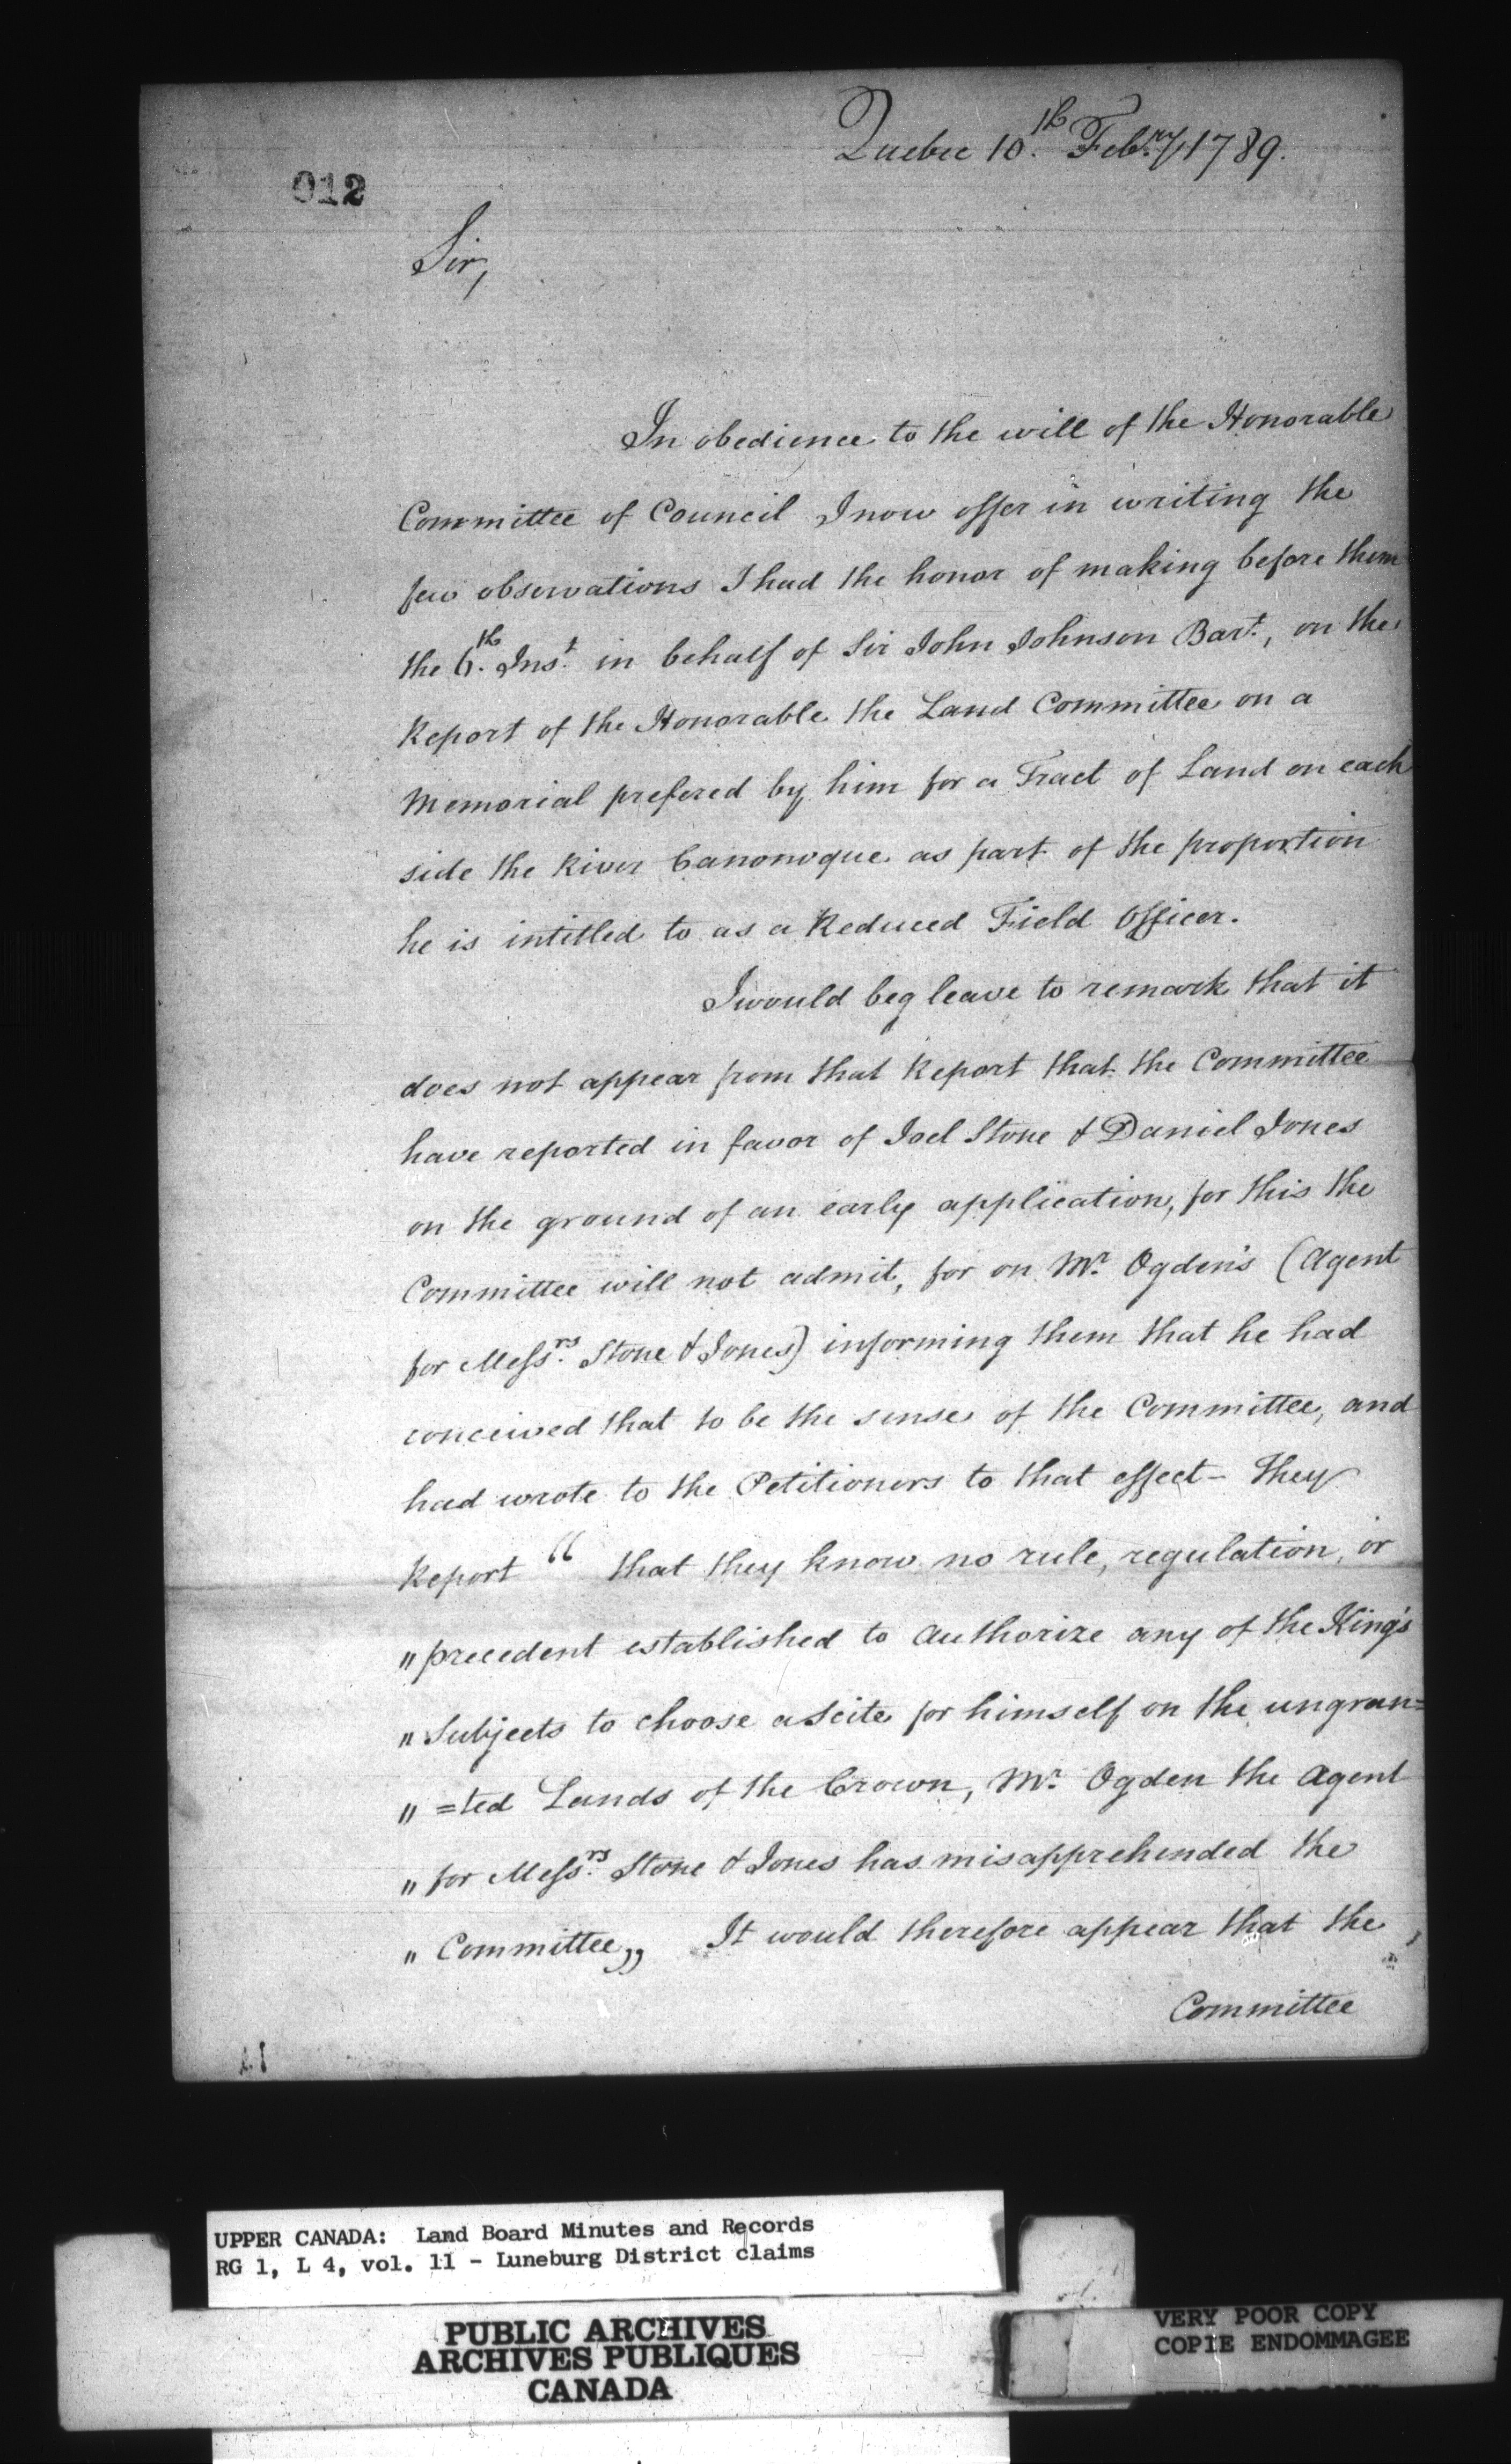 Quebec 10.th Feb.ry 1789.
012
Sir,
In obedience to the will of the Honorable
Committee of Council I now offer in writing the
few observations I had the honor of making before them
the 6.th Ins.t in behalf of Sir John Johnson Bar.t, on the
Report of the Honorable the Land Committee on a
Memorial prefered by him for a Tract of Land on each
side the River Canonoque as part of the proportion
he is intitled to as a Reduced Field Officer.
I would beg leave to remark that it
does not appear from that Report that the Committee
have reported in favor of Joel Stone & Daniel Jones
on the ground of an early application, for this the
Committee will not admit, for on M.r Ogden's (Agent
for Mess.rs Stone & Jones) informing them that he had
conceived that to be the sense of the Committee, and
had wrote to the Petitioners to that effect - they
Report " that they know no rule, regulation, or
" precedent established to authorize any of the King's
" Subjects to choose a Scite for himself on the ungran=
" =ted Lands of the Crown, M.r Ogden the Agent
" for Mess.rs Stone & Jones has misapprehended the
" Committee,, It would therefore appear that the
Committee
UPPER CANADA: Land Board Minutes and Records
RG 1, L 4, vol. 11 - Luneburg District claims
PUBLIC ARCHIVES
ARCHIVES PUBLIQUES
CANADA
VERY POOR COPY
COPIE ENDOMMAGEE